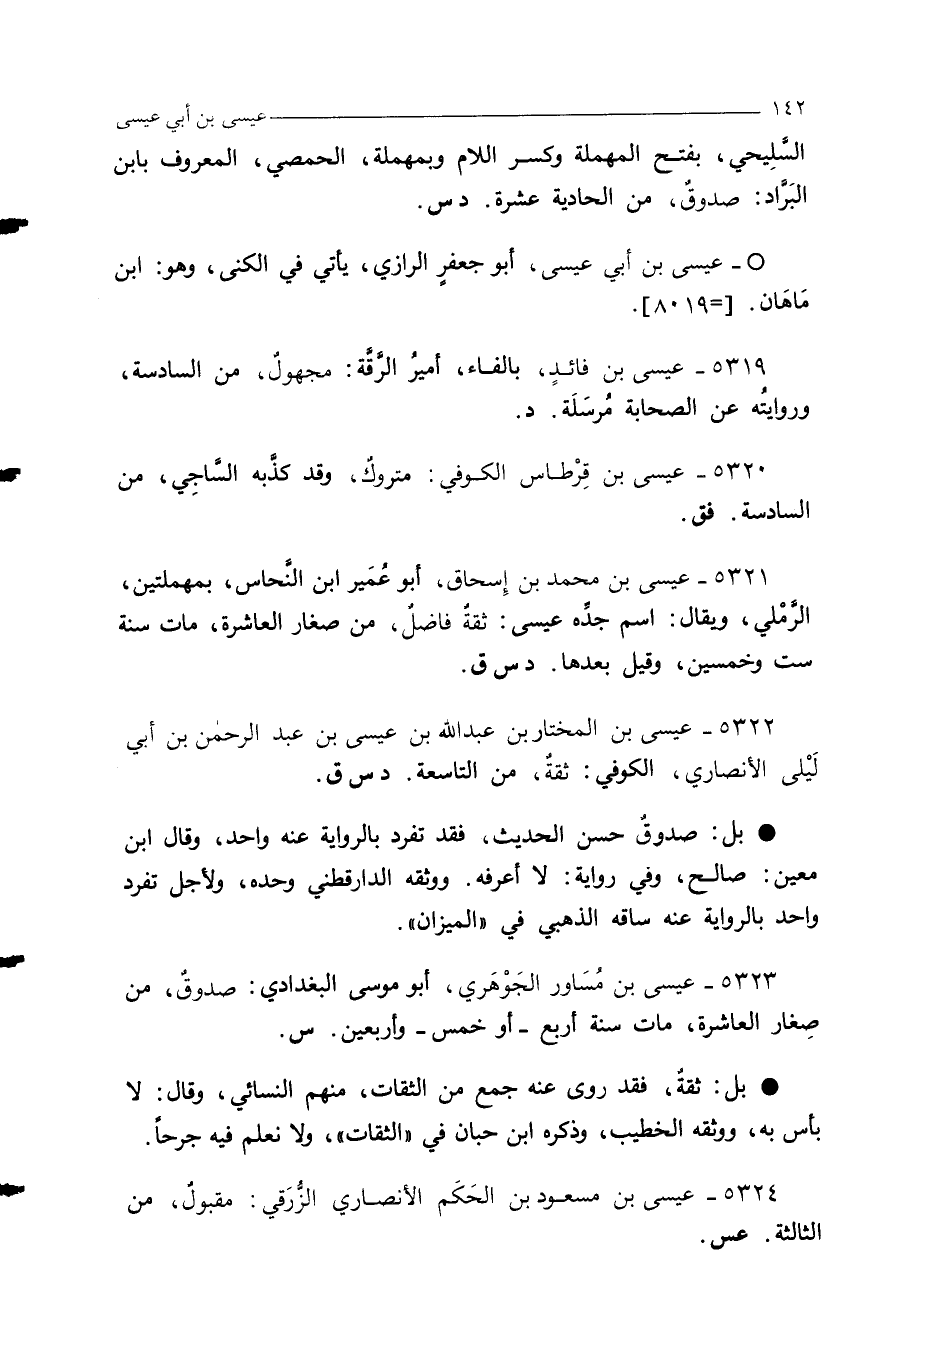 ١٤٢ عيسى بن أبي عيسى
السَّلِيحي، بفتح المهملة وكسر اللام وبمهملة، الحمصي، المعروف بابن
البَرَّاد: صدوقٌ، من الحادية عشرة. د س.
○ ـ عيسى بن أبي عيسى، أبو جعفرٍ الرازي، يأتي في الكنى، وهو: ابن
مَاهَان. [=٨٠١٩].
٥٣١٩ ـ عيسى بن فائدٍ، بالفاء، أميرُ الرَّقَّة: مجهولٌ، من السادسة،
وروايتُه عن الصحابة مُرسَلَة. د.
٥٣٢٠ ـ عيسى بن قِرْطاس الكوفي: متروكٌ، وقد كذَّبه السَّاجِي، من
السادسة. فق.
٥٣٢١ ـ عيسى بن محمد بن إسحاق، أبو عُمَير ابن النَّحاس، بمهملتين،
الرَّمْلي، ويقال: اسم جدِّه عيسى: ثقةٌ فاضلٌ، من صغار العاشرة، مات سنة
ست وخمسين، وقيل بعدها. د س ق.
٥٣٢٢ ـ عيسى بن المختار بن عبدالله بن عيسى بن عبد الرحمٰن بن أبي
لَيْلى الأنصاري، الكوفي: ثقةٌ، من التاسعة. د س ق.
● بل: صدوقٌ حسن الحديث، فقد تفرد بالرواية عنه واحد، وقال ابن
معين: صالح، وفي رواية: لا أعرفه. ووثقه الدارقطني وحده، ولأجل تفرد
واحد بالرواية عنه ساقه الذهبي في «الميزان».
٥٣٢٣ ـ عيسى بن مُسَاور الجَوْهَري، أبو موسى البغدادي: صدوقٌ، من
صِغار العاشرة، مات سنة أربع ـ أو خمس ـ وأربعين. س.
● بل: ثقةٌ، فقد روى عنه جمع من الثقات، منهم النسائي، وقال: لا
بأس به، ووثقه الخطيب، وذكره ابن حبان في «الثقات»، ولا نعلم فيه جرحاً.
٥٣٢٤ ـ عيسى بن مسعود بن الحَكَم الأنصاري الزُّرَقي: مقبولٌ، من
الثالثة. عس.